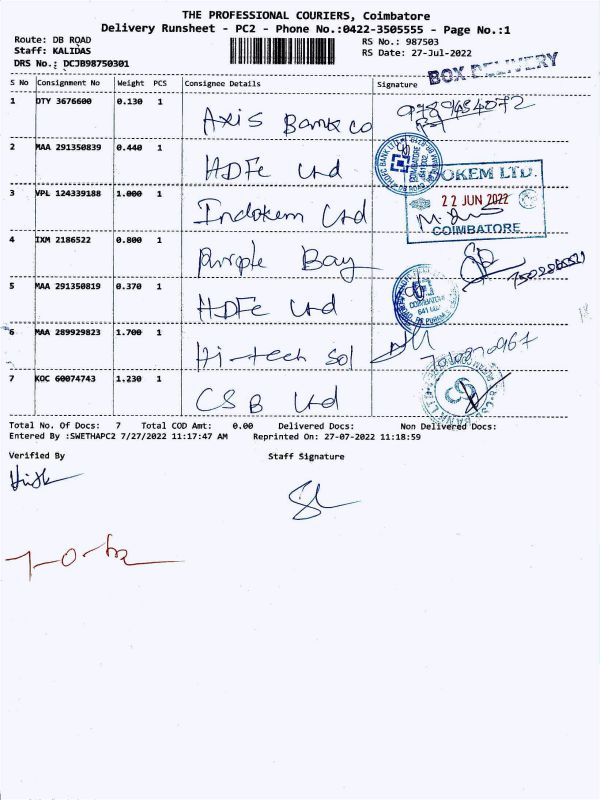 THE PROFESSIONAL COURIERS, Coimbatore
Delivery Runsheet - PC2 - Phone No.:0422-3505555 - Page No.:1
Route: DB ROAD RS No.: 987503
Staff: KALIDAS RS Date: 27-Jul-2022
DRS No.: DCJB98750301
BOX DELIVERY
S No Consignment No Weight PCS Consignee Details Signature
1 DTY 3676600 0.130 1 Axis Bank co
2 MAA 291350839 0.440 1 HDFC Ltd
3 VPL 124339188 1.000 1 Indokem Ltd
DOKEM LTD.
22 JUN 2022
COIMBATORE
4 IXM 2186522 0.800 1 Purple Bay
5 MAA 291350819 0.370 1 HDFC Ltd
6 MAA 289929823 1.700 1 Hi-tech Sol
7 KOC 60074743 1.230 1 CSB Ltd
Total No. Of Docs: 7 Total COD Amt: 0.00 Delivered Docs: Non Delivered Docs:
Entered By :SWETHAPC2 7/27/2022 11:17:47 AM Reprinted On: 27-07-2022 11:18:59
Verified By Staff Signature